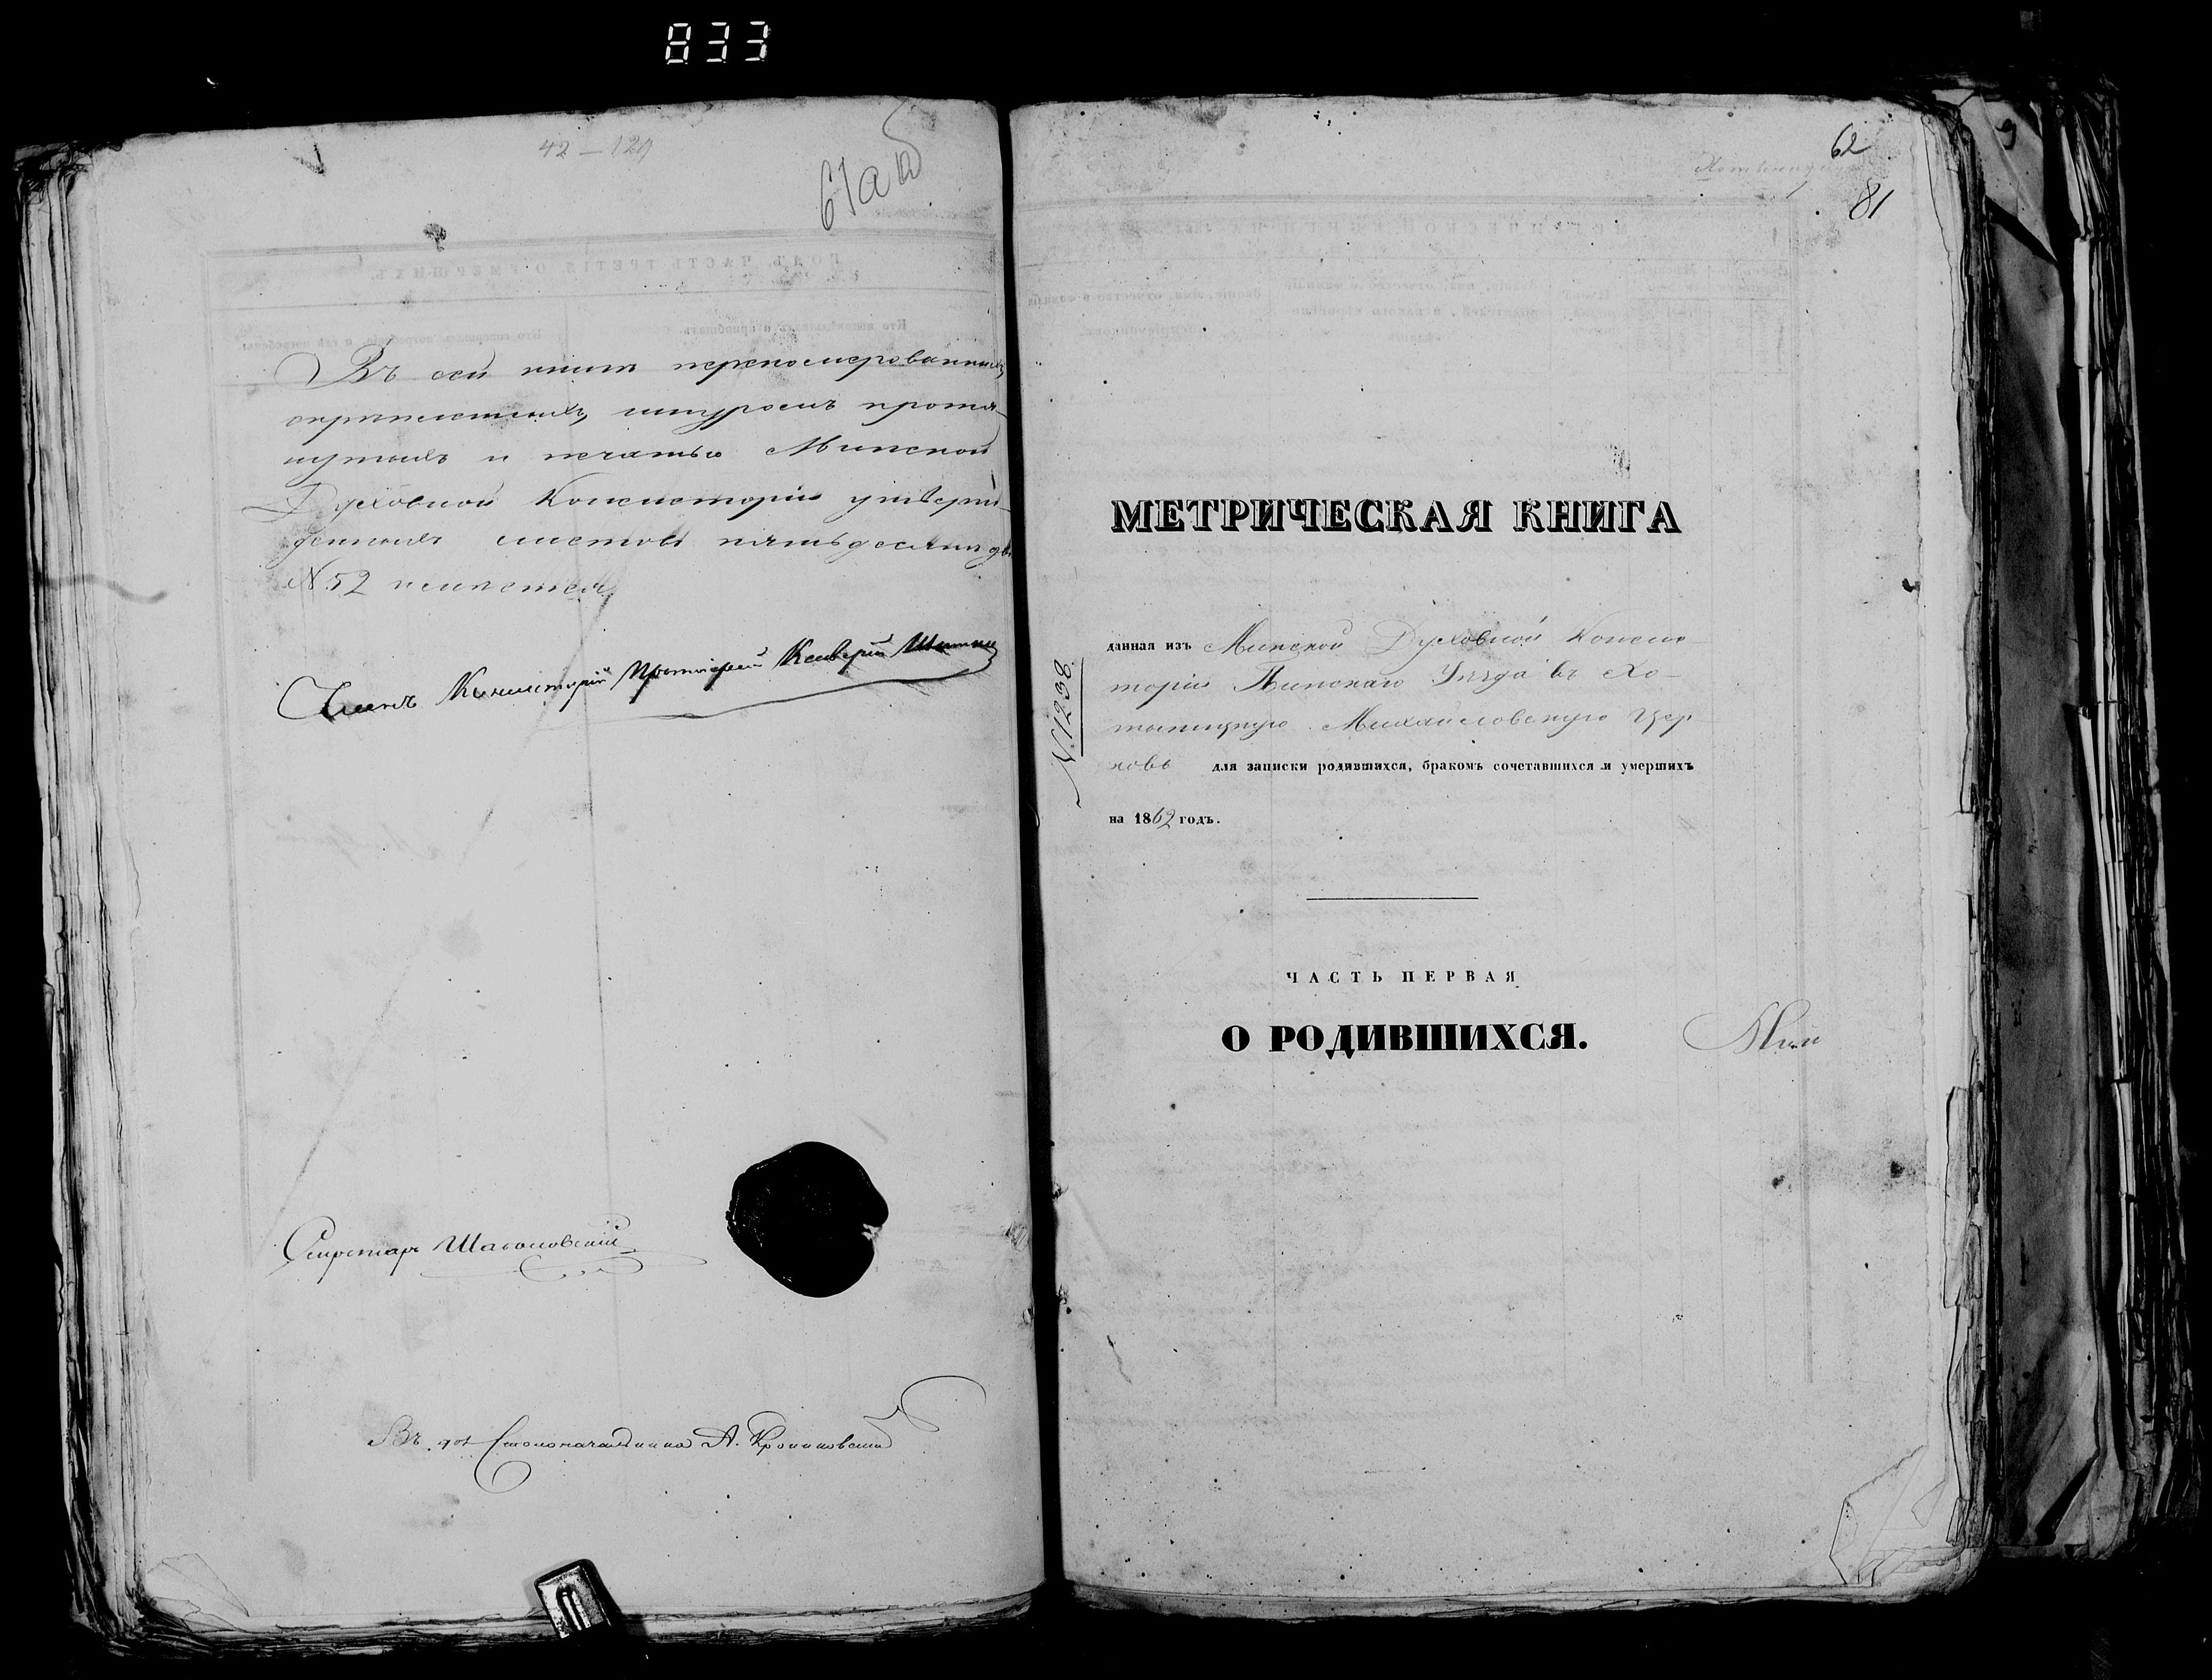 833
42 — 129
61 а об
Въ сей книгѣ перенумерованныхъ,
скрѣпленныхъ, шнуромъ протя-
нутыхъ и печатью Минской
Духовной Консисторіи утверж-
денныхъ листовъ пятьдесятъ два
№ 52 имѣется.
Членъ Консисторіи Протоіерей
Секретарь
Въ дол. Столоначальника А.
62
81
МЕТРИЧЕСКАЯ КНИГА
данная изъ Минской Духовной Консис-
торіи Пинскаго Уѣзда въ Хо-
тыницкую Михайловскую Цер
ковь для записки родившихся, бракомъ сочетавшихся и умершихъ
на 1862 годъ.
№ 1238
ЧАСТЬ ПЕРВАЯ
О РОДИВШИХСЯ.